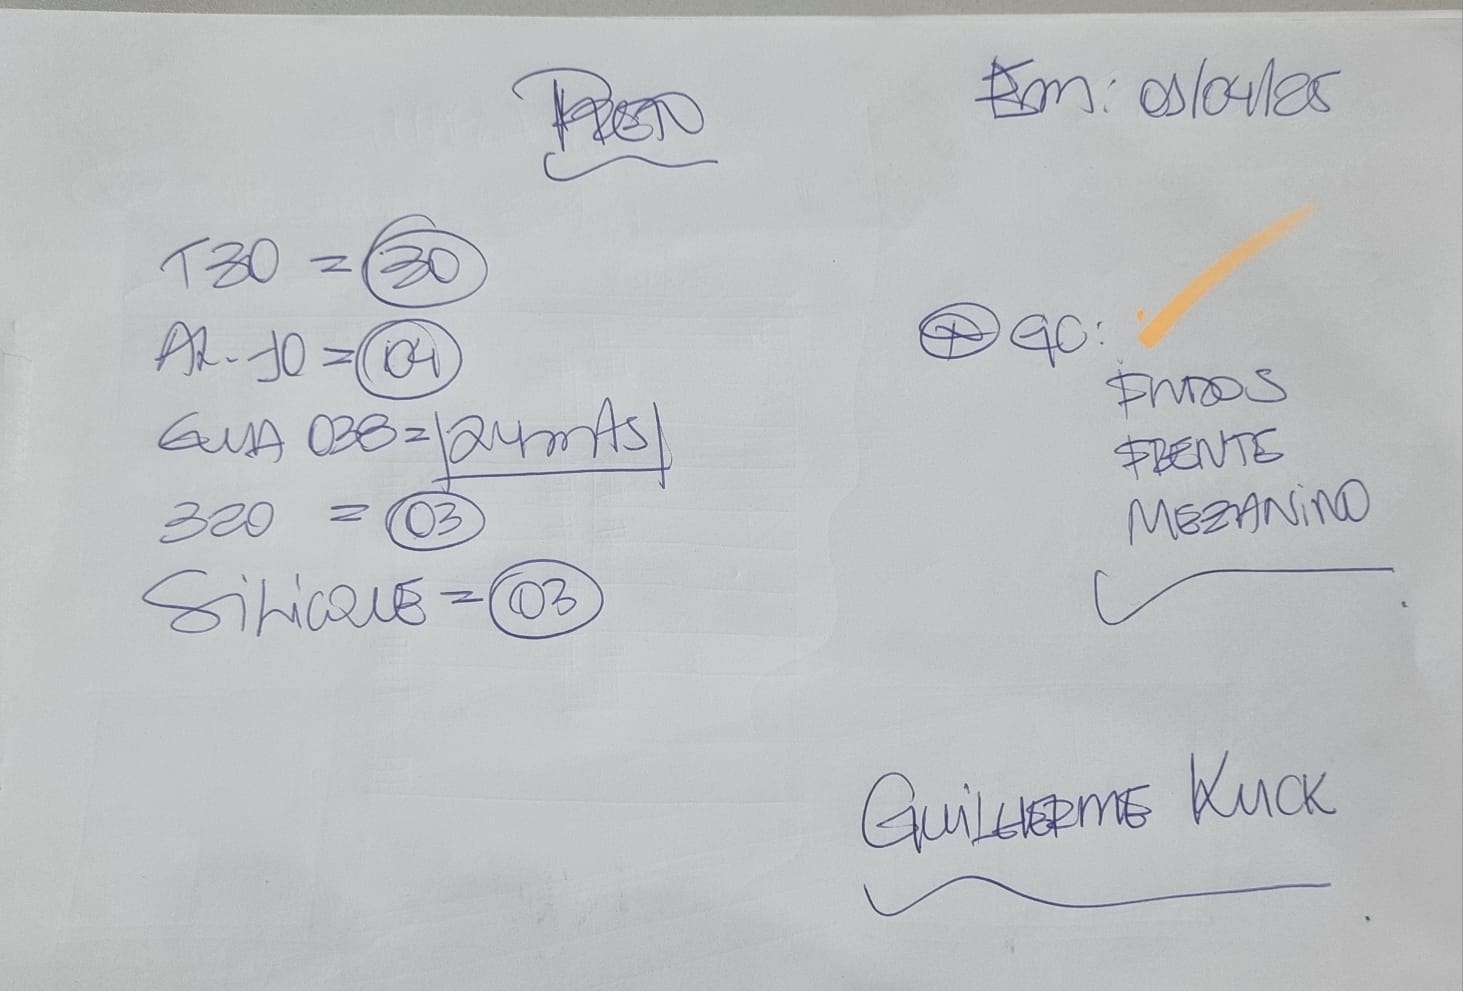 Em: 09/04/25
T30 = 30
AL-10 = 04
GUIA 038 = 24mts
320 = 03
SiLiCONE = 03
+ GC:
FUNDOS
FRENTE
MEZANiNO
GUiLHERME KUCK